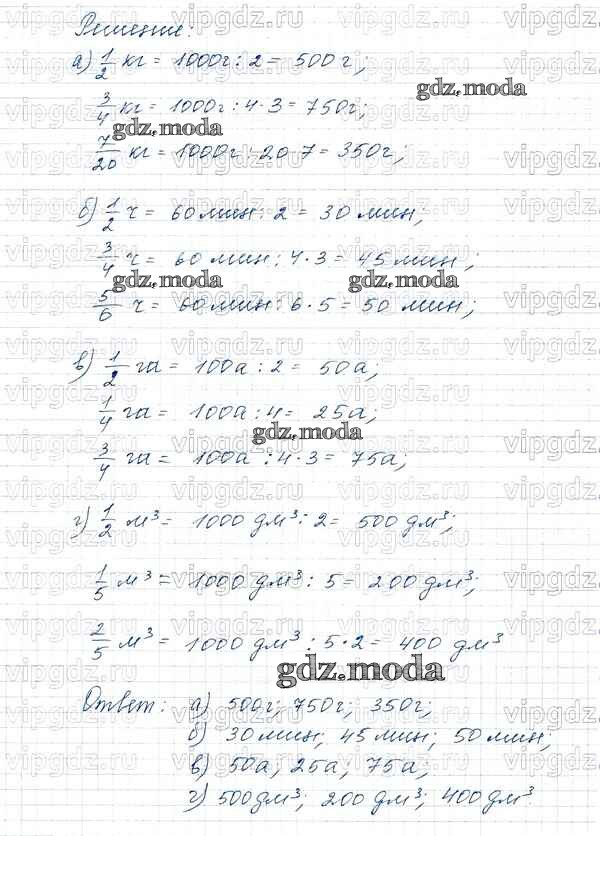 Решение:
а) 1/2 кг = 1000г : 2 = 500 г;
3/4 кг = 1000г : 4 · 3 = 750г;
7/20 кг = 1000г : 20 · 7 = 350г;
б) 1/2 ч = 60 мин : 2 = 30 мин;
3/4 ч = 60 мин : 4 · 3 = 45 мин;
5/6 ч = 60 мин : 6 · 5 = 50 мин;
в) 1/2 га = 100а : 2 = 50а;
1/4 га = 100а : 4 = 25а;
3/4 га = 100а : 4 · 3 = 75а;
г) 1/2 м³ = 1000 дм³ : 2 = 500 дм³;
1/5 м³ = 1000 дм³ : 5 = 200 дм³;
2/5 м³ = 1000 дм³ : 5 · 2 = 400 дм³
Ответ: а) 500г; 750г; 350г;
б) 30 мин; 45 мин; 50 мин;
в) 50а; 25а; 75а;
г) 500 дм³; 200 дм³; 400 дм³
gdz.moda
gdz.moda
gdz.moda
gdz.moda
gdz.moda
gdz.moda
vipgdz.ru